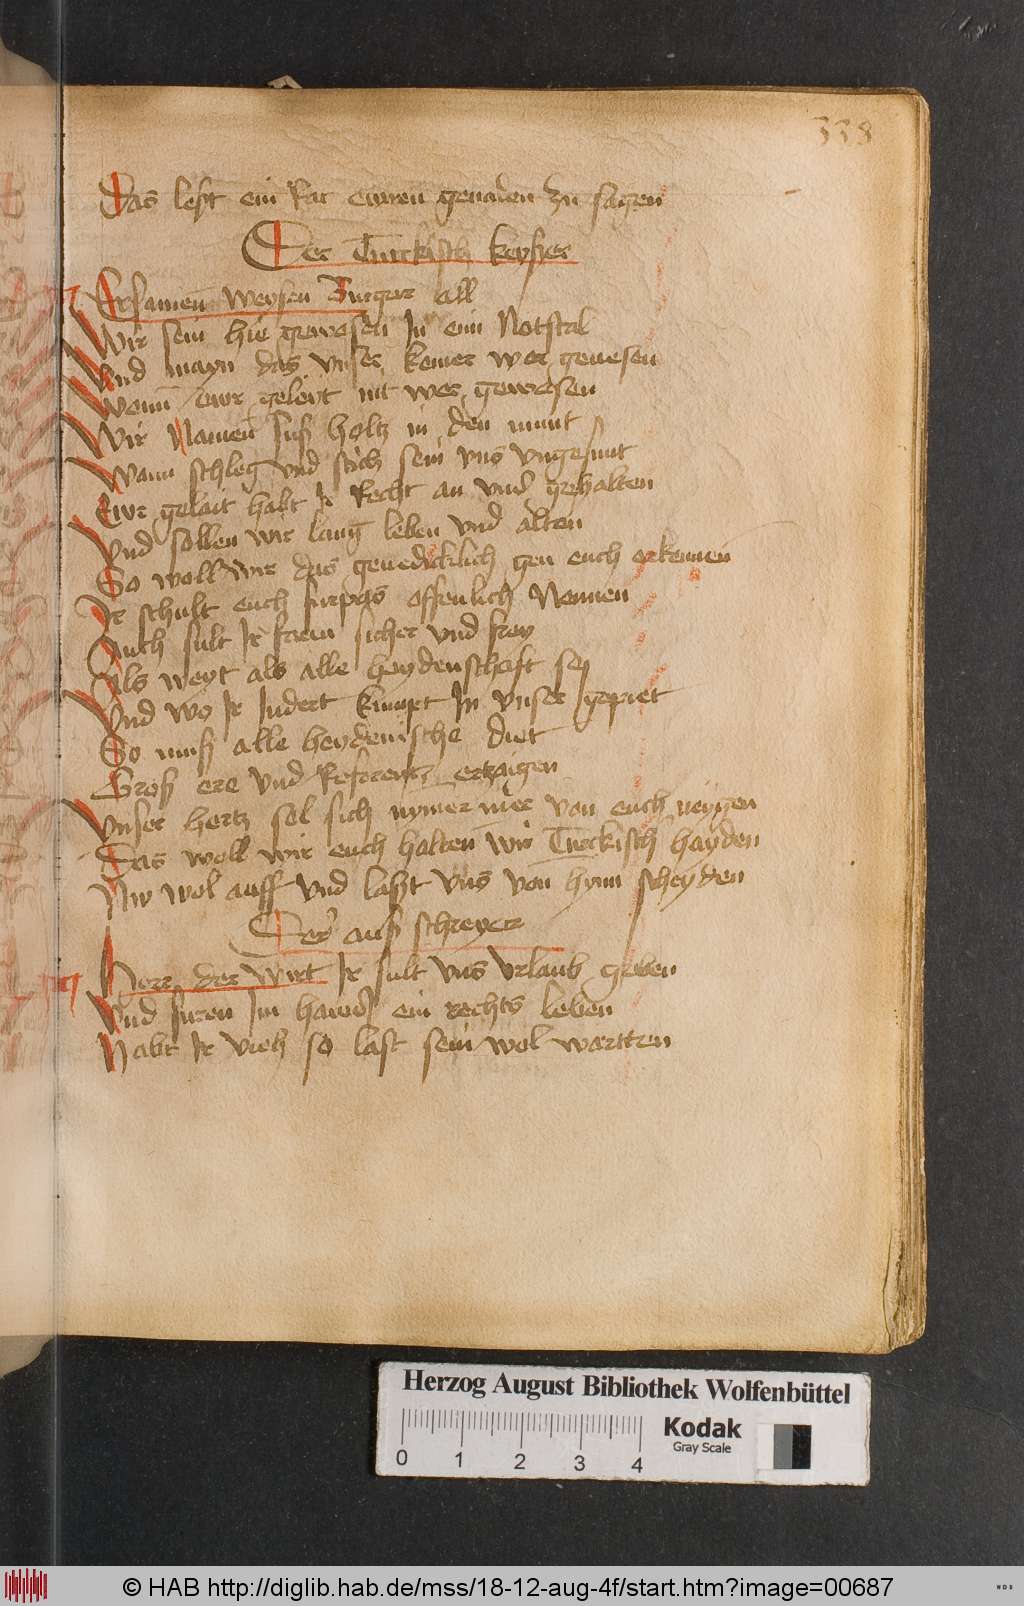 338
Das lest ein Rat ewren genaden zu sagen
Der Turckisch keyser
Ersamen weysen Burger all
Wir sein hie gewesen In eim Notstal
Und mayn das unser keiner wer genesen
Wenn ewr geleyt nit wer gewesen
Wir Namen suß holtz in den munt
Wann schleg und stich sein uns ungesunt
Ewr gelait habt Ir Recht an uns gehalten
Und sollen wir lang leben und alten
So woll wir das genedicklich gen euch erkennen
Ir schult euch furpas offenlich Nennen
Auch sult Ir frein sicher und frey
Als weyt als alle heydenschaft sey
Und wo Ir Indert kumpt In unser gepiet
So muß alle heydenische diet
Groß ere und Referentz ertzaigen
Unser hertz sol sich nymer mer von euch neygen
Das woll wir euch halten wir Turckisch hayden
Nw wol auff und laßt uns von hynn scheyden
Der auß schreyer
Herr der wirt Ir sult uns urlaub geben
Und furen Im hawß ein rechts leben
Habt Ir vich so last sein wol wartten
Herzog August Bibliothek Wolfenbüttel
Kodak
Gray Scale
0 1 2 3 4
© HAB http://diglib.hab.de/mss/18-12-aug-4f/start.htm?image=00687
WDB